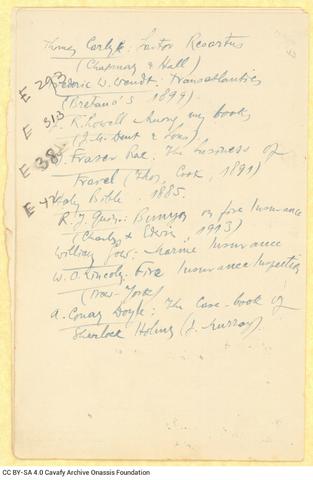 Thomas Carlyle: Sartor Resartus
(Chapman & Hall)
E 293
Frederic W. Wendt: Transatlantics
(Bretano's 1899)
E 313
J. R. Lowell Among my books
(J. M. Dent & Sons)
E 38
W. Fraser Rae: The business of
Travel (Thos. Cook, 1891)
E 42
Holy Bible. 1885.
R. J. : Bunyon on fire Insurance
(Charles & Edwin, 1913)
William Gow: Marine Insurance
W. O. Lincoln: Fire Insurance Inspection
(New-York)
A. Conan Doyle: The Case-book of
Sherlock Holmes (J. Murray).
CC BY-SA 4.0 Cavafy Archive Onassis Foundation